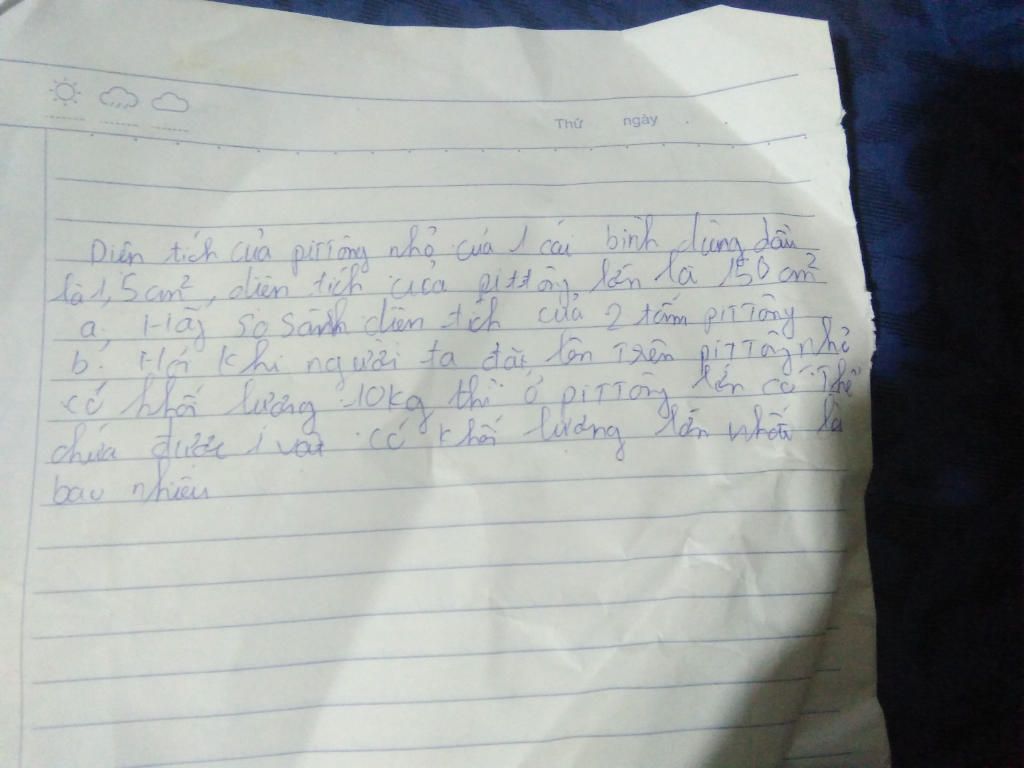 Thứ ngày
Diện tích của pittông nhỏ của 1 cái bình dùng dầu
là 1,5cm², diện tích của pittông lớn là 150cm²
a, Hãy so sánh diện tích của 2 tấm pittông
b. Hỏi khi người ta đặt lên trên pittông nhỏ
có khối lượng 10kg thì ở pittông lớn có thể
chứa được 1 vật có khối lượng lớn nhất là
bao nhiêu